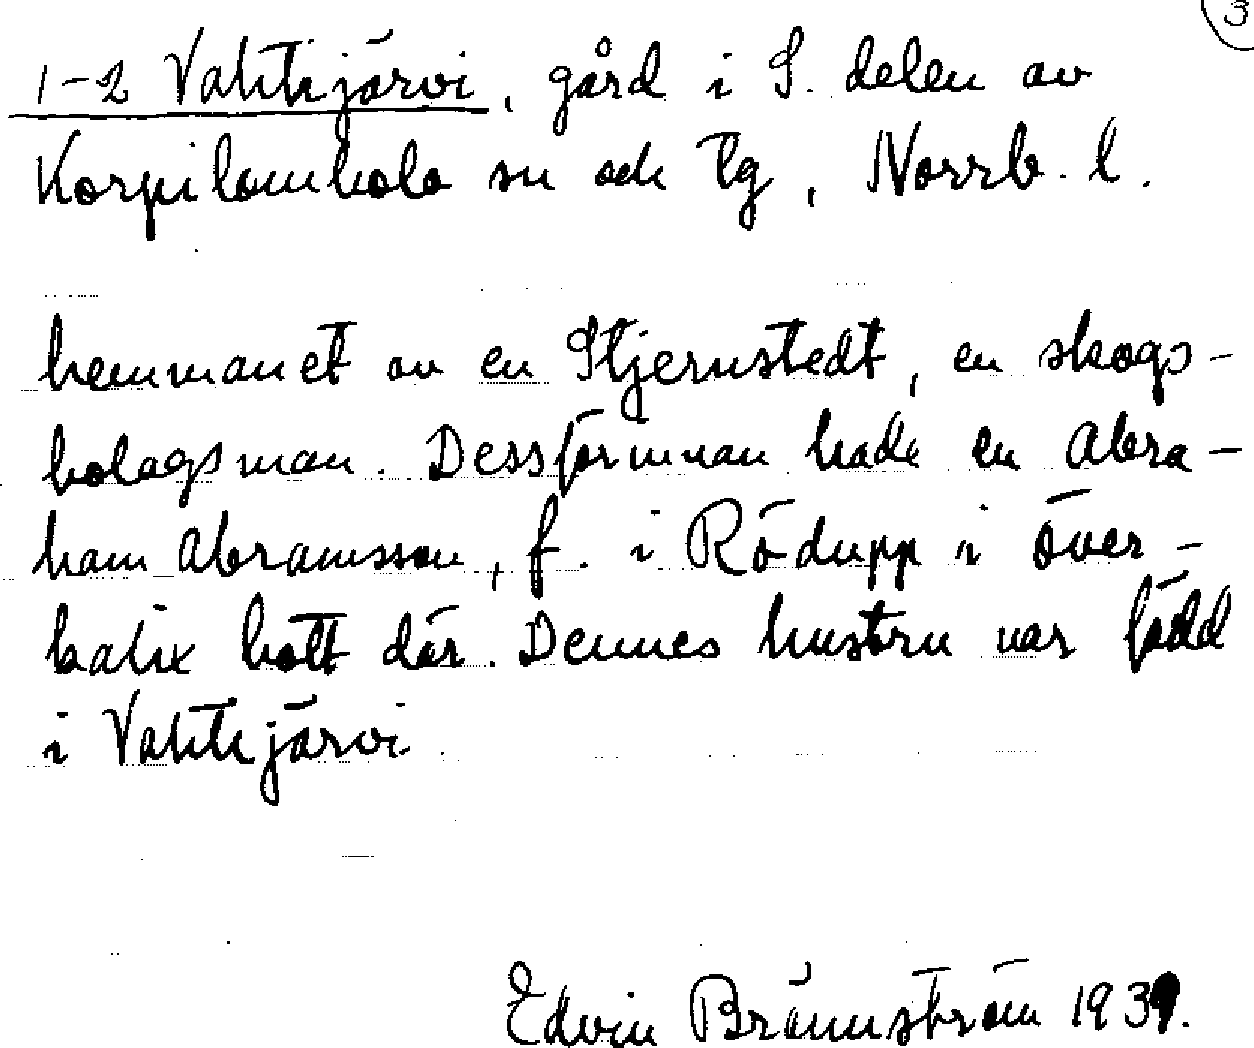 3
1-2 Vahtijärvi, gård i S. delen av
Korpilombolo sn och tg, Norrb. l.
hemmanet av en Stjernstedt, en skogs-
bolagsman. Dessförinnan hade en Abra-
ham Abramsson, f. i Rödupp i över-
kalix bott där. Dennes hustru var född
i Vahtijärvi
Edvin Brännström 1939.